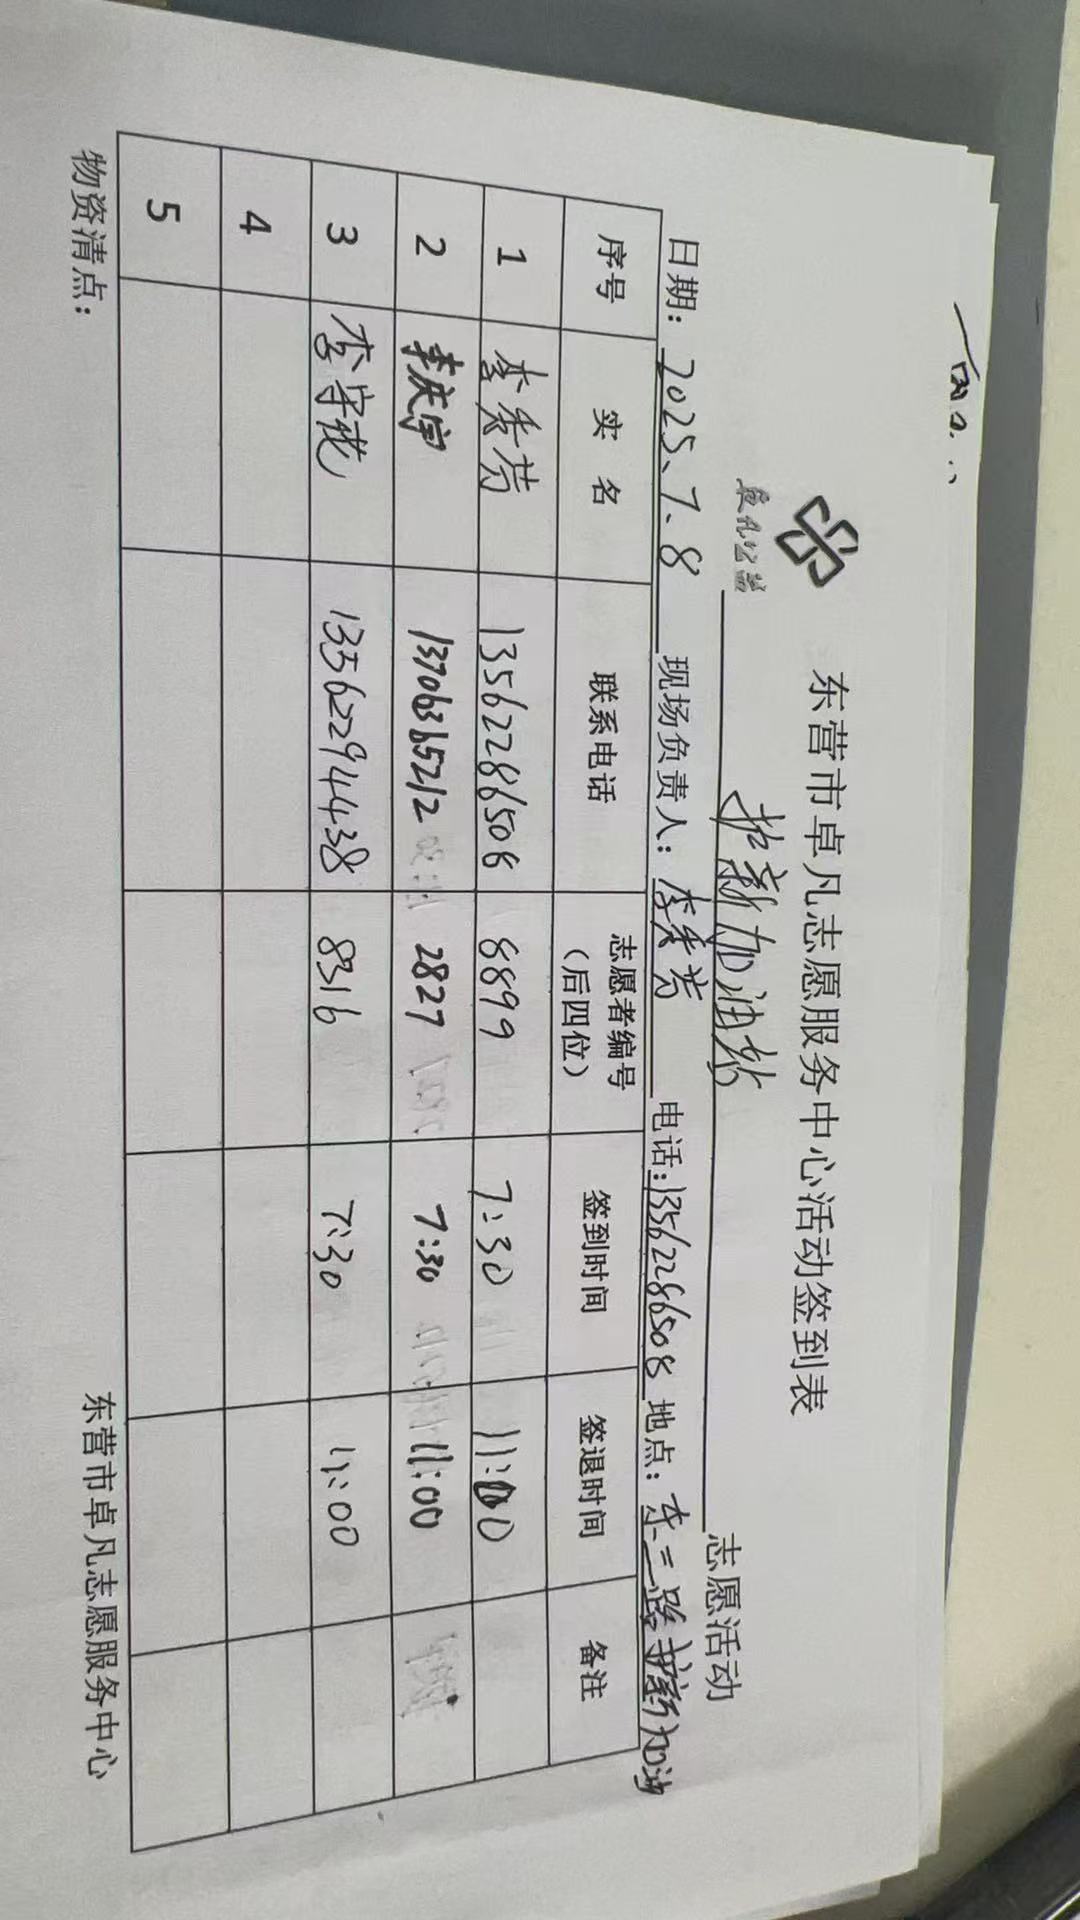 东营市卓凡志愿服务中心活动签到表
卓凡公益
护新加油站 志愿活动
日期：2025、7、8 现场负责人：李秀芳 电话：13562286508 地点：东二路护新加油
序号 实 名 联系电话 志愿者编号（后四位） 签到时间 签退时间 备注
1 李秀芳 13562286508 8899 7:30 11:00
2 李庆宇 13706365212 2827 7:30 11:00
3 李守 13562294438 8316 7:30 11:00
4
5
物资清点：
东营市卓凡志愿服务中心